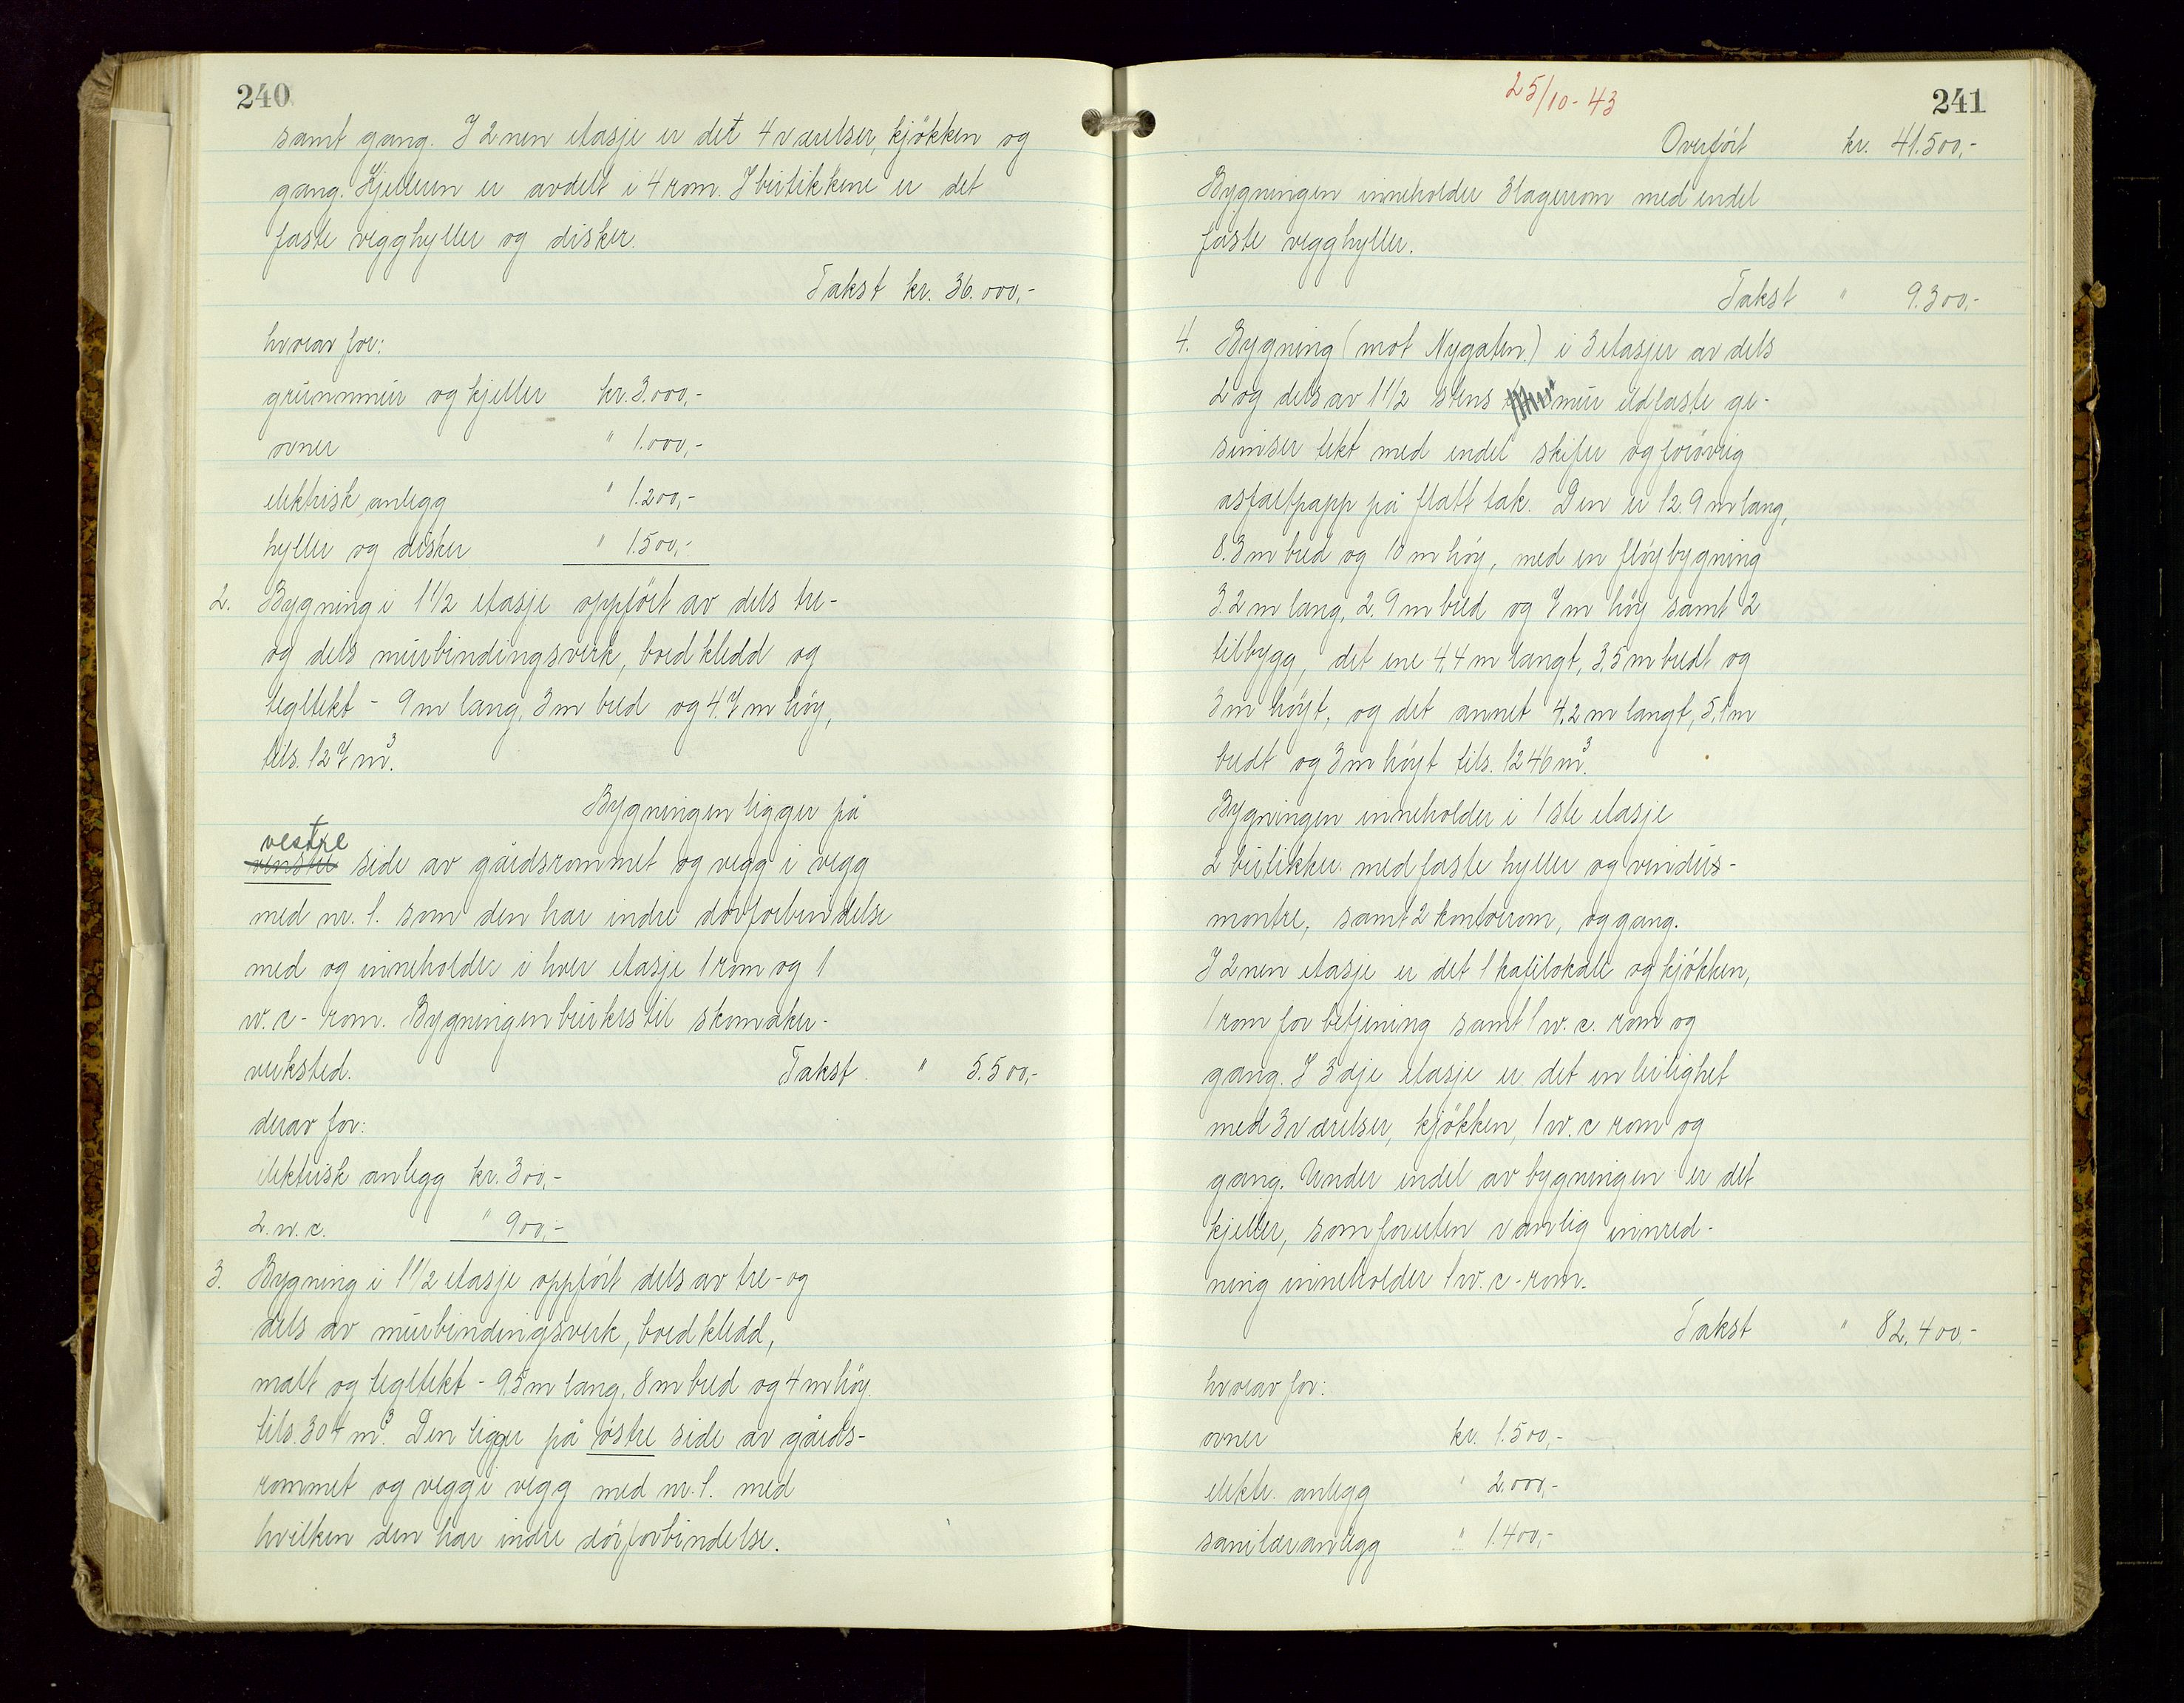 240
samt gang. I 2nen etasje er det 4 værelser, kjøkken og
gang. Kjelleren er avdelt i 4 rom. I butikkene er det
faste vegghyller og disker.
Takst kr. 36.000,-
hvorav for:
grunnmur og kjeller kr. 3.000,-
ovner " 1.000,-
elektrisk anlegg " 1.200,-
hyller og disker " 1.500,-
2. Bygning i 1 1/2 etasje oppført av dels tre-
og dels murbindingsverk, bordkledd og
tegltekt - 9 m lang, 3 m bred og 4.7 m høy,
tils. 127 m³.
Bygningen ligger på
vestre
venstre side av gårdsrommet og vegg i vegg
med nr. 1. som den har indre dørforbindelse
med og inneholder i hver etasje 1 rom og 1
w.c - rom. Bygningen brukes til skomaker-
verksted. Takst " 5.500,-
derav for:
elektrisk anlegg kr. 300,-
2. w.c. " 900,-
3. Bygning i 1 1/2 etasje oppført dels av tre- og
dels av murbindingsverk, bordkledd,
malt og tegltekt - 9.5 m lang, 8 m bred og 4 m høy.
tils. 304 m³. Den ligger på østre side av gårds-
rommet og vegg i vegg med nr. 1. med
hvilken den har indre dørforbindelse.
25/10-43
241
Overført kr. 41.500,-
Bygningen inneholder 3 lagerrom med endel
faste vegghyller.
Takst " 9.300,-
4. Bygning (mot Nygaten.) i 3 etasjer av dels
2 og dels av 1 1/2 stens mur ildfaste ge-
simser tekt med endel skifer og forøvrig
asfaltpapp på flatt tak. Den er 12.9 m lang,
8.3 m bred og 10 m høy, med en fløybygning
3.2 m lang, 2.9 m bred og 7 m høy samt 2
tilbygg, det ene 4,4 m langt, 3,5 m bredt og
3 m høyt, og det annet 4,2 m langt, 5,1 m
bredt og 3 m høyt tils. 1246 m³.
Bygningen inneholder i 1ste etasje
2 butikker med faste hyller og vindus-
montre, samt 2 kontorrom, og gang.
I 2nen etasje er det 1 kafélokale og kjøkken,
1 rom for betjening samt 1 w.c. rom og
gang. I 3dje etasje er det en leilighet
med 3 værelser, kjøkken, 1 w.c rom og
gang. Under endel av bygningen er det
kjeller, som foruten vanlig innred-
ning inneholder 1 w.c-rom.
Takst " 82,400,-
hvorav for:
ovner kr. 1.500,-
elektr. anlegg " 2.000,-
sanitæranlegg " 1.400,-